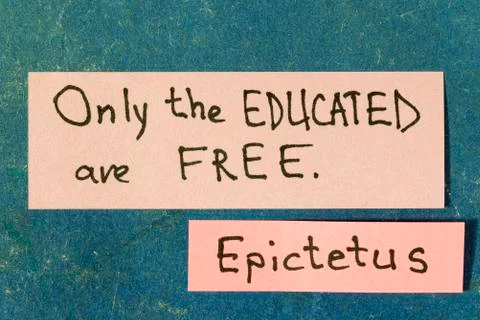 Only the EDUCATED
are FREE.
Epictetus